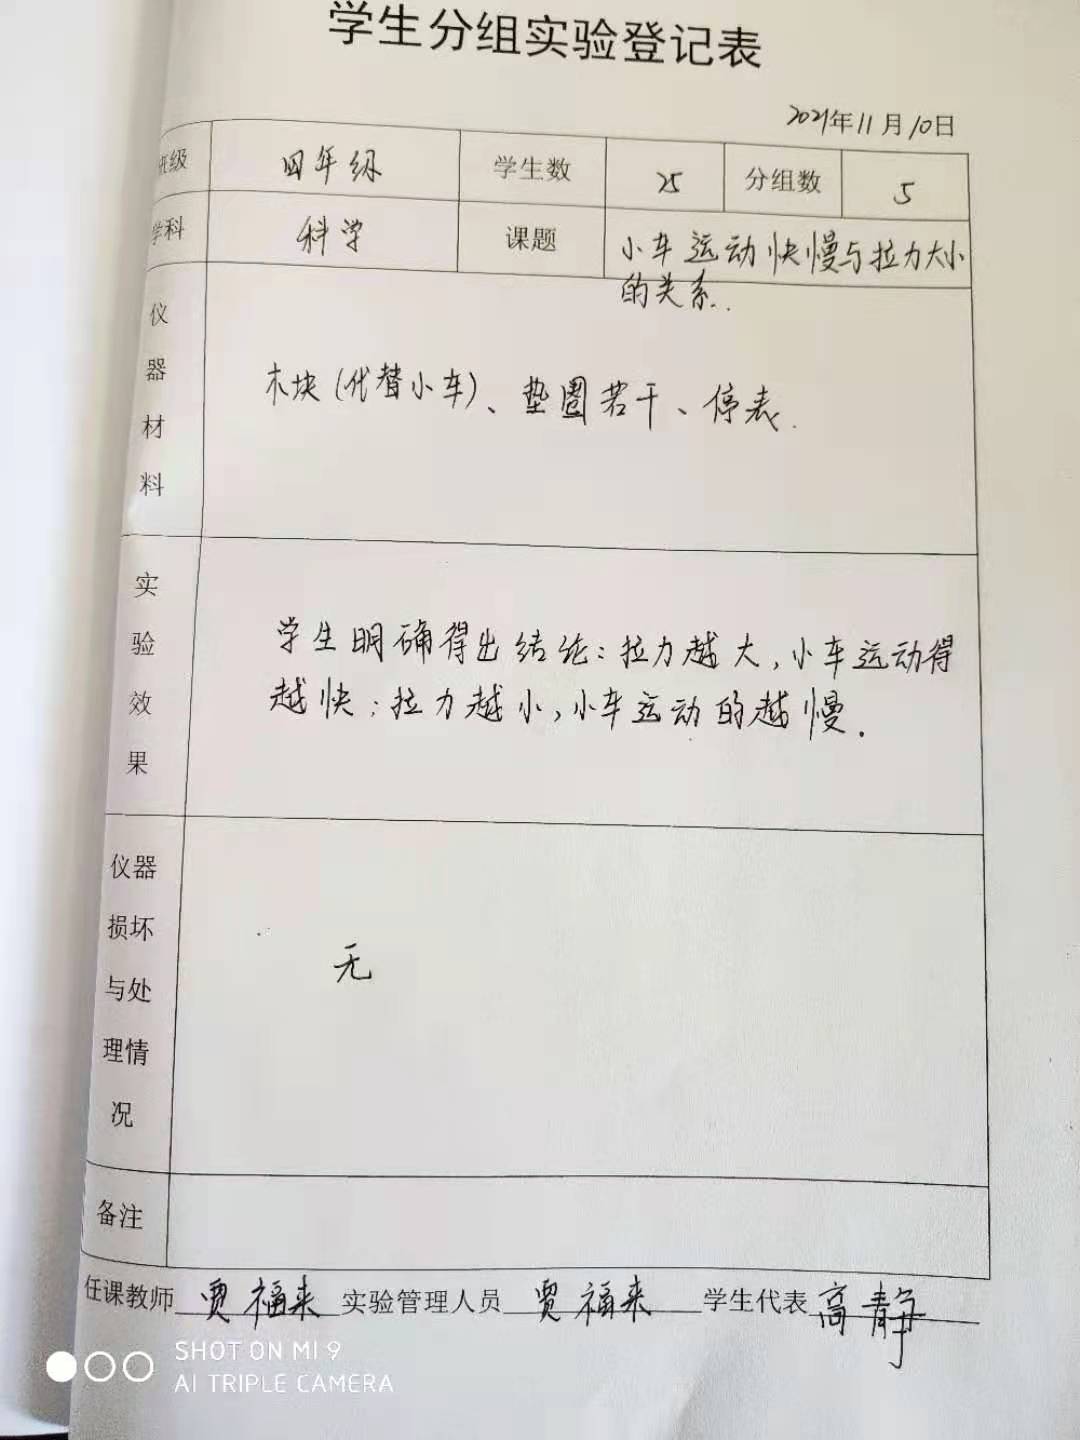 学生分组实验登记表
2021年11月10日
班级 四年级 学生数 25 分组数 5
学科 科学 课题 小车运动快慢与拉力大小
的关系.
仪
器
材
料
木块(代替小车)、垫圈若干、停表.
实
验
效
果
学生明确得出结论:拉力越大,小车运动得
越快;拉力越小,小车运动的越慢.
仪器
损坏
与处
理情
况
无
备注
任课教师 贾福来 实验管理人员 贾福来 学生代表 高静
SHOT ON MI 9
AI TRIPLE CAMERA